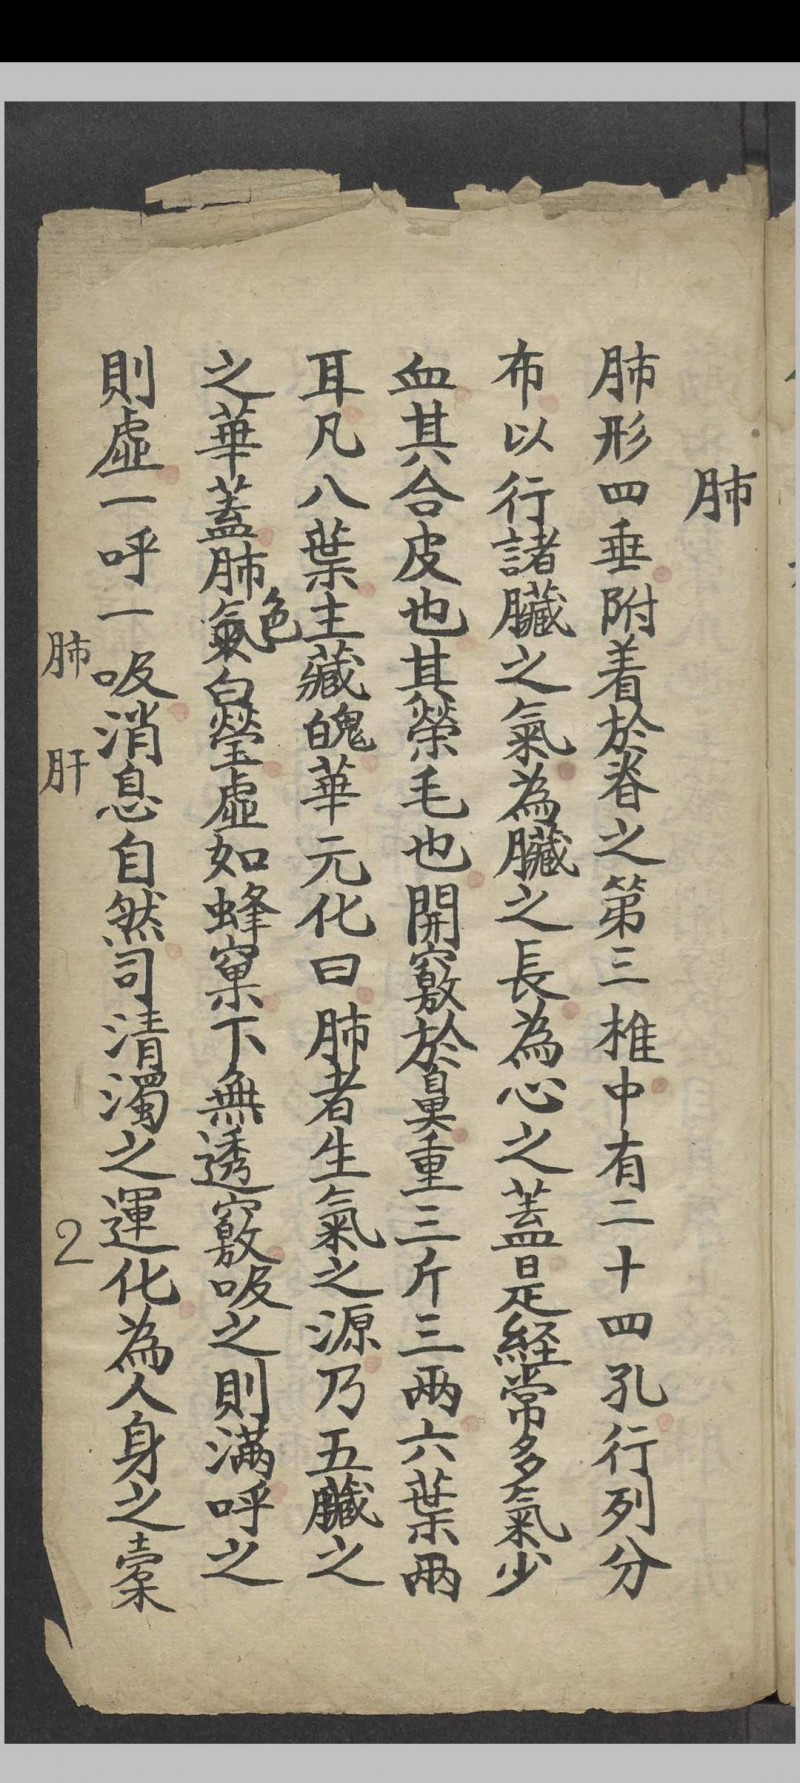 肺
肺形四垂附着於脊之第三椎中有二十四孔行列分
布以行諸臓之氣為臓之長為心之蓋是経常多氣少
血其合皮也其榮毛也開竅於鼻重三斤三两六葉兩
耳凡八葉主藏魄華元化曰肺者生氣之源乃五臓之
之華蓋肺氣色白瑩虛如蜂窠下無透竅吸之則满呼之
則虛一呼一吸消息自然司清濁之運化為人身之槖
肺 肝
2